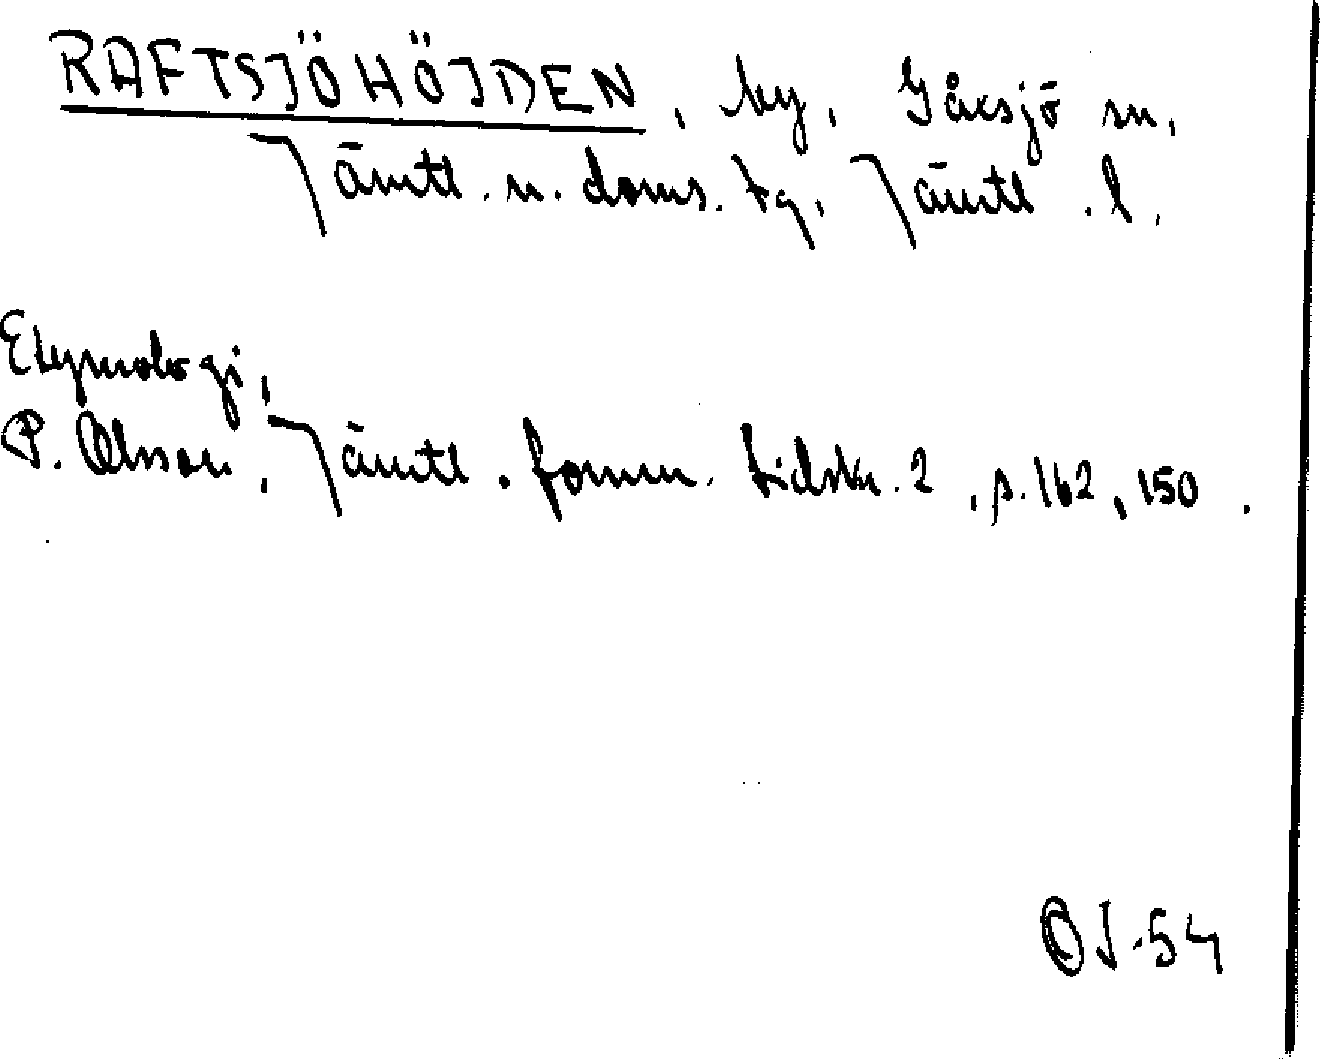 RAFTSJÖHÖJDEN, by, Gåxsjö sn,
Jämtl. n. doms. tg, Jämtl. l.
Etymologi,
P. Olsson, Jämtl. fornm. tidskr. 2, s. 162, 150.
OJ-54